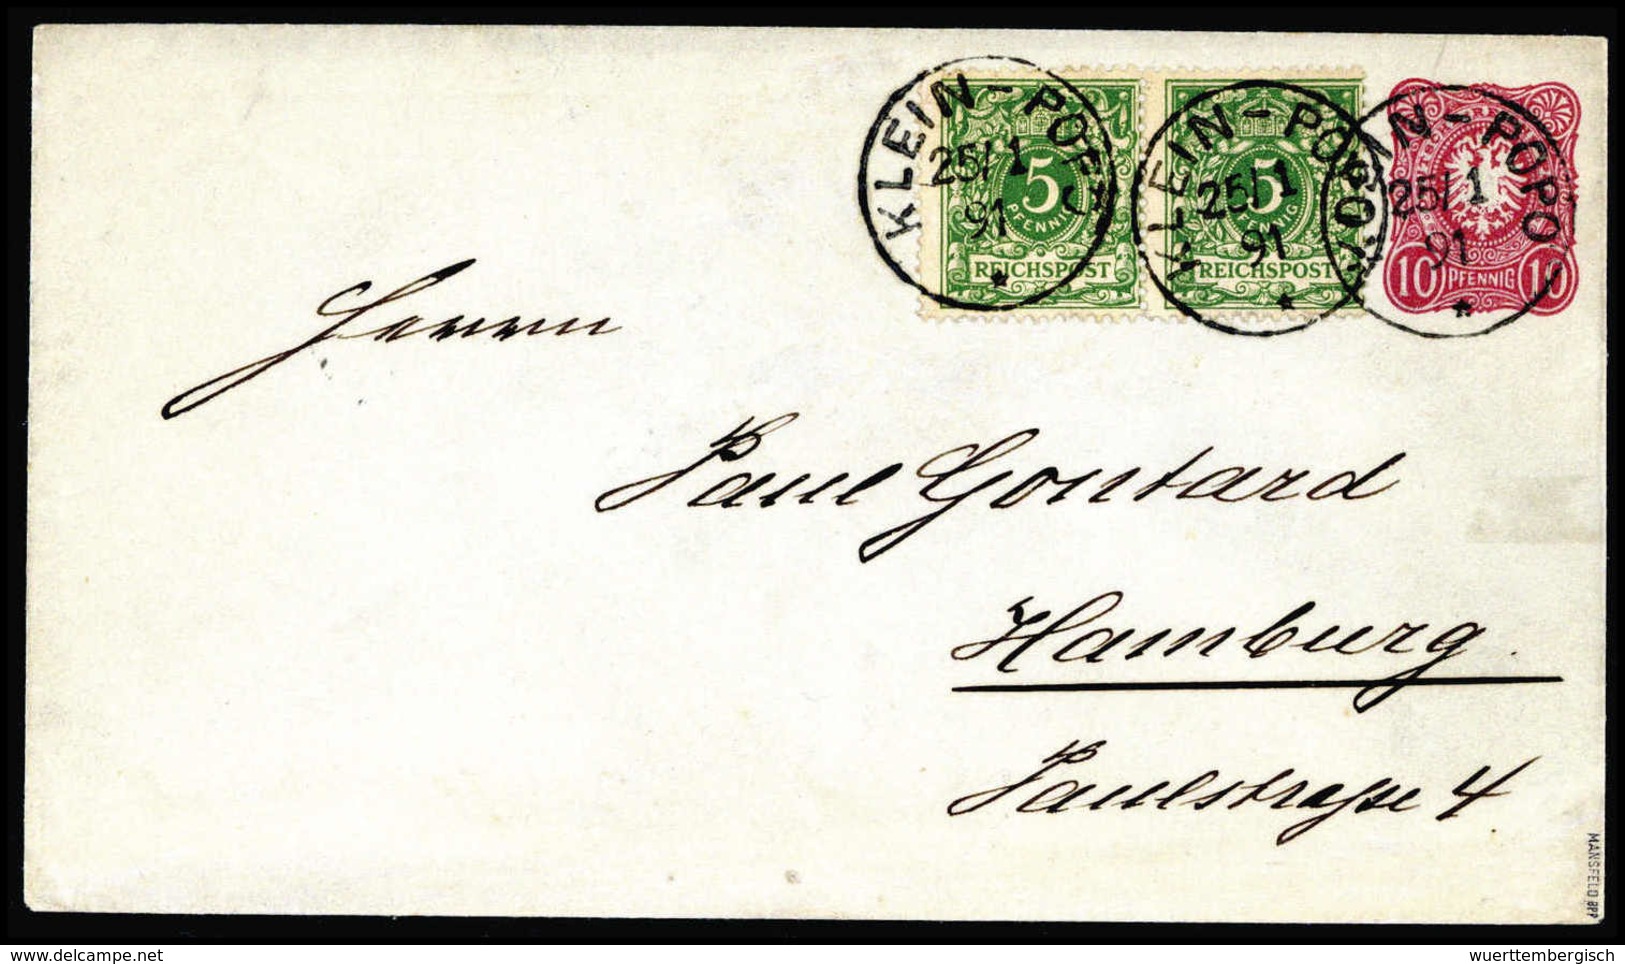 KLEIN-POPO
25/1
91
*
KLEIN-POPO
25/1
91
*
KLEIN-POPO
25/1
91
*
5
PFENNIG
REICHSPOST
5
PFENNIG
REICHSPOST
10 PFENNIG 10
Herrn
Paul Gontard
Hamburg.
Paulstraße 4
MANSFELD BPP
delcampe.net
wuerttembergisch